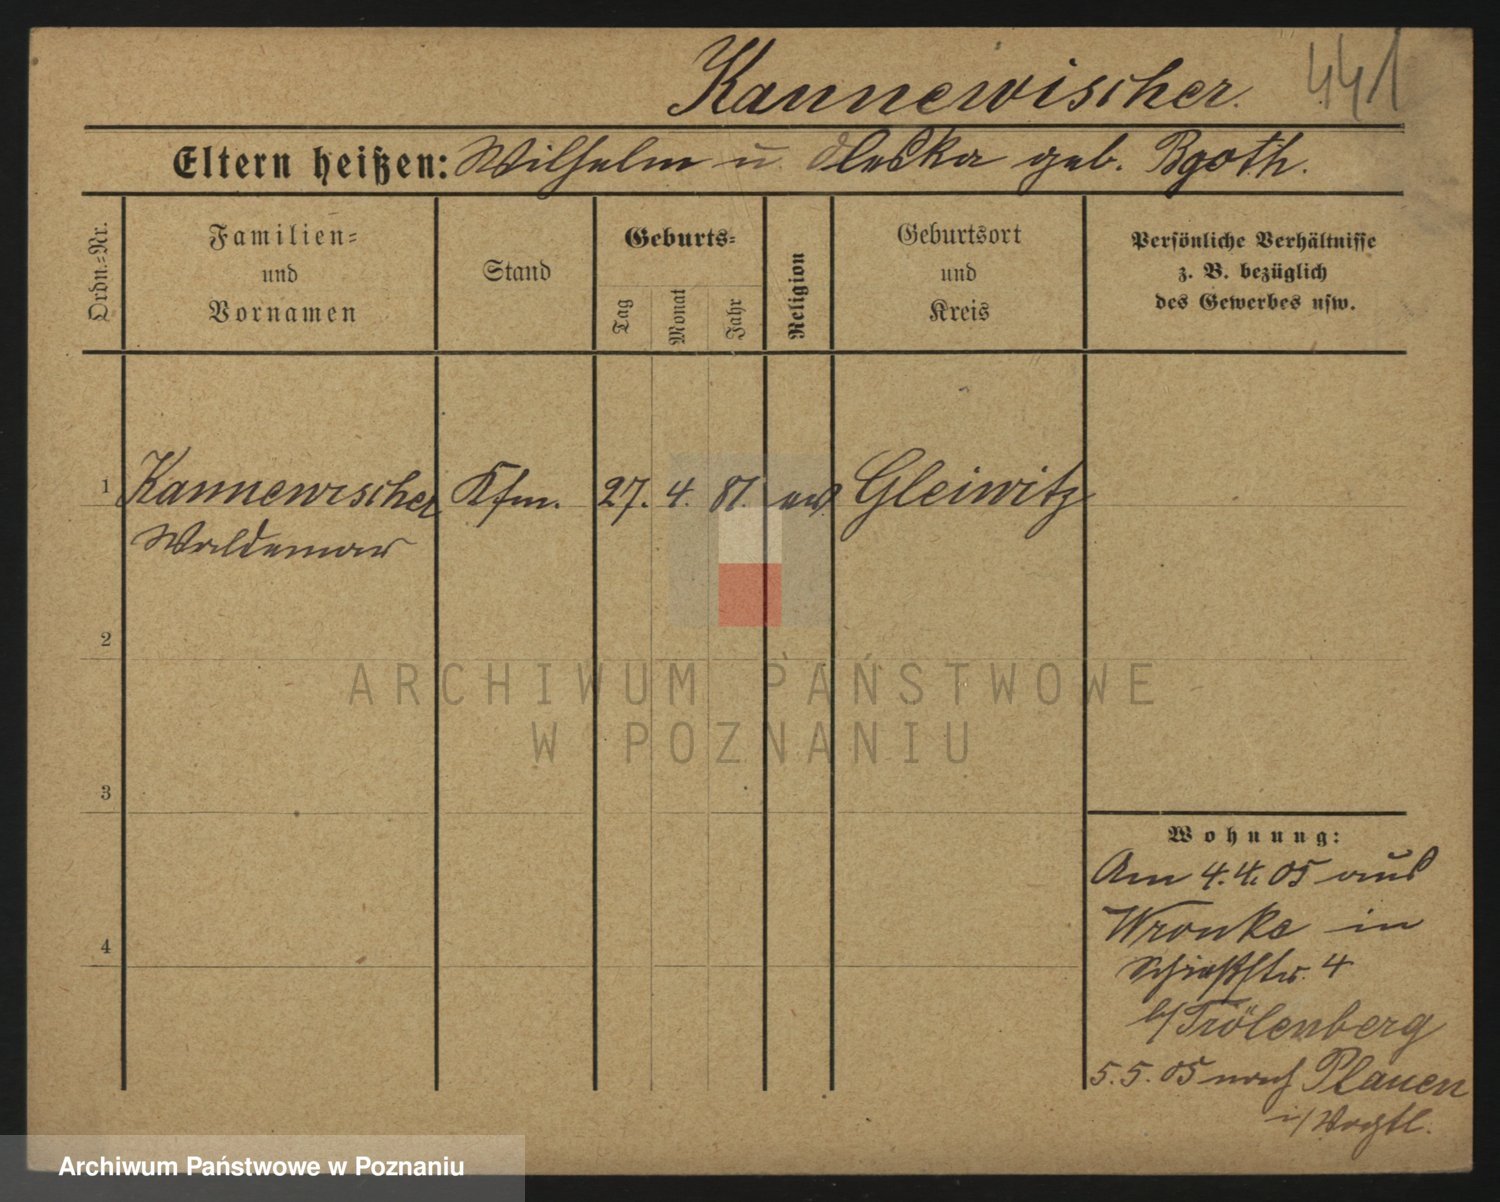 Kannewischer.
441
Eltern heißen: Wilhelm u. geb. Bgoth.
Ordn.-Nr.
Familien-
und
Vornamen
Stand
Geburts-
Tag
Monat
Jahr
Religion
Geburtsort
und
Kreis
Persönliche Verhältnisse
z. B. bezüglich
des Gewerbes usw.
1 Kannewischer Kfm. 27. 4. 81. ev. Gleiwitz
Waldemar
2
ARCHIWUM PAŃSTWOWE
W POZNANIU
3
Wohnung:
Am 4.4.05 aus
Wronke in
4
Schießstr. 4
b/ Trölenberg
5.5.05 nach Plauen
i/ Vogtl.
Archiwum Państwowe w Poznaniu